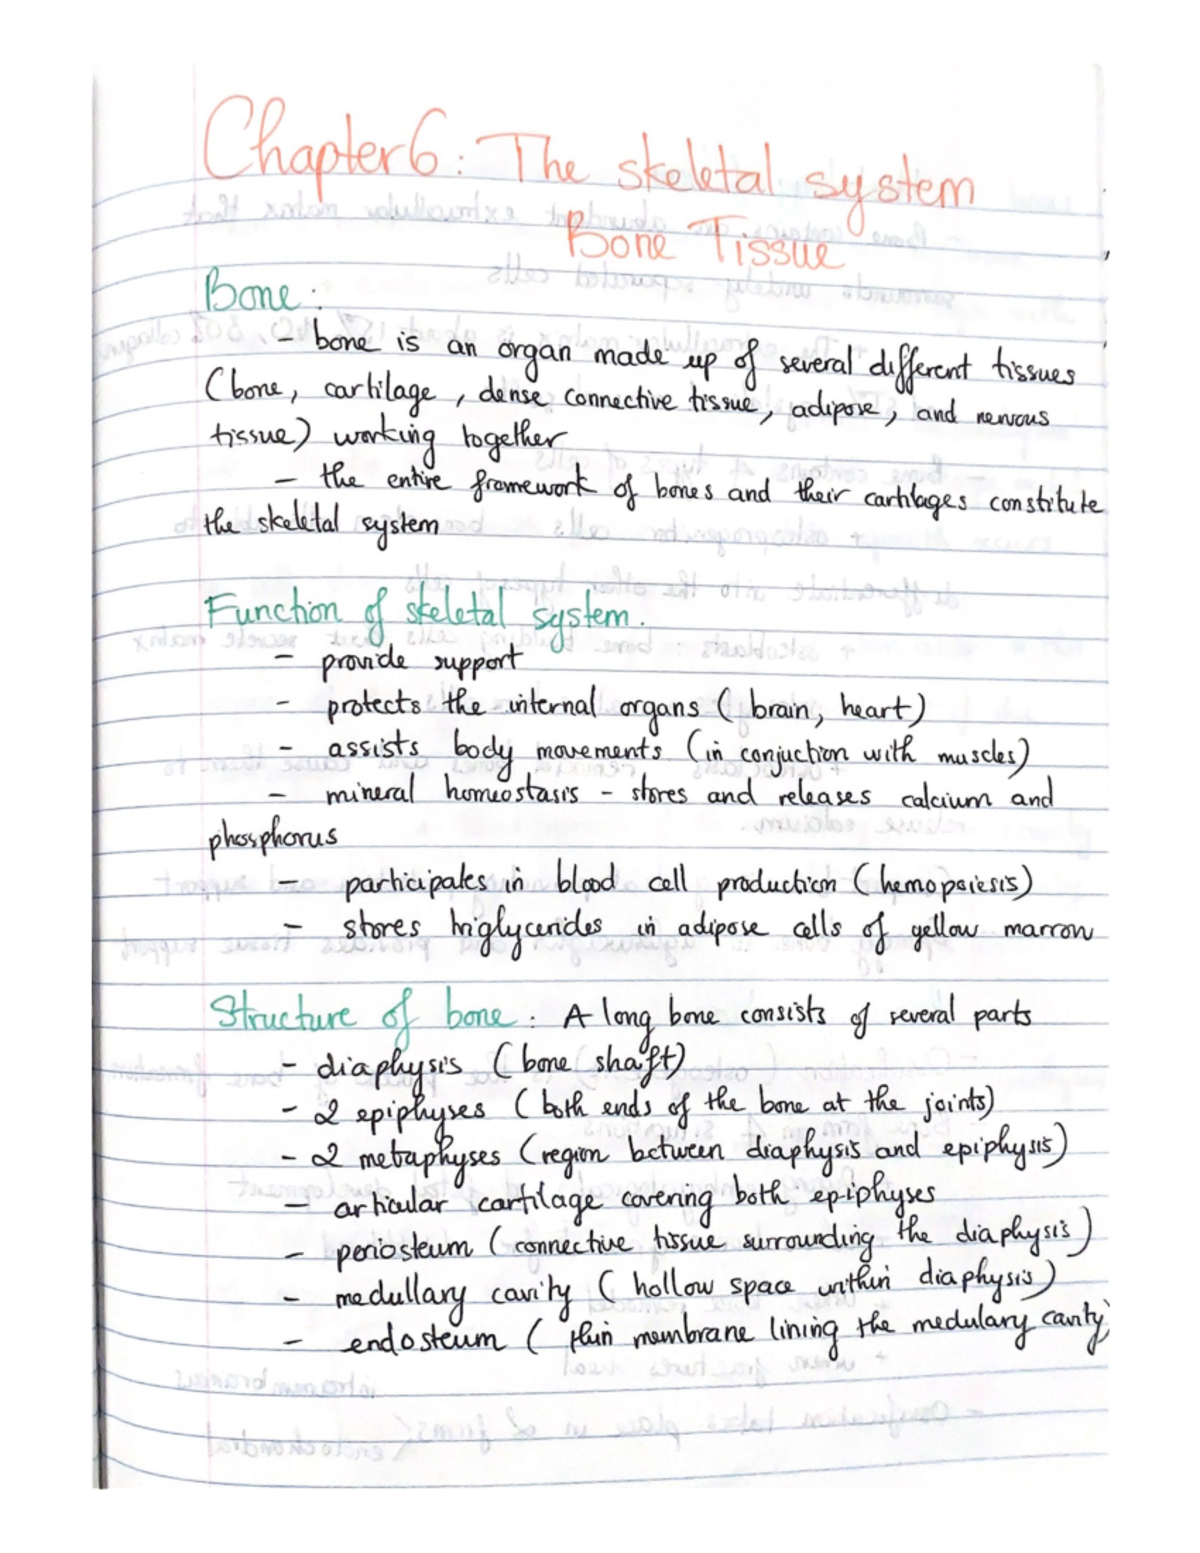 Chapter 6: The skeletal system
Bone Tissue
Bone:
- bone is an organ made up of several different tissues
(bone, cartilage, dense connective tissue, adipose, and nervous
tissue) working together
- the entire framework of bones and their cartilages constitute
the skeletal system
Function of skeletal system.
- provide support
- protects the internal organs (brain, heart)
- assists body movements (in conjuction with muscles)
- mineral homeostasis - stores and releases calcium and
phosphorus
- participates in blood cell production (hemopoiesis)
- stores triglycerides in adipose cells of yellow marrow
Structure of bone: A long bone consists of several parts
- diaphysis (bone shaft)
- 2 epiphyses (both ends of the bone at the joints)
- 2 metaphyses (region between diaphysis and epiphysis)
- articular cartilage covering both epiphyses
- periosteum (connective tissue surrounding the diaphysis)
- medullary cavity (hollow space within diaphysis)
- endosteum (thin membrane lining the medulary cavity)